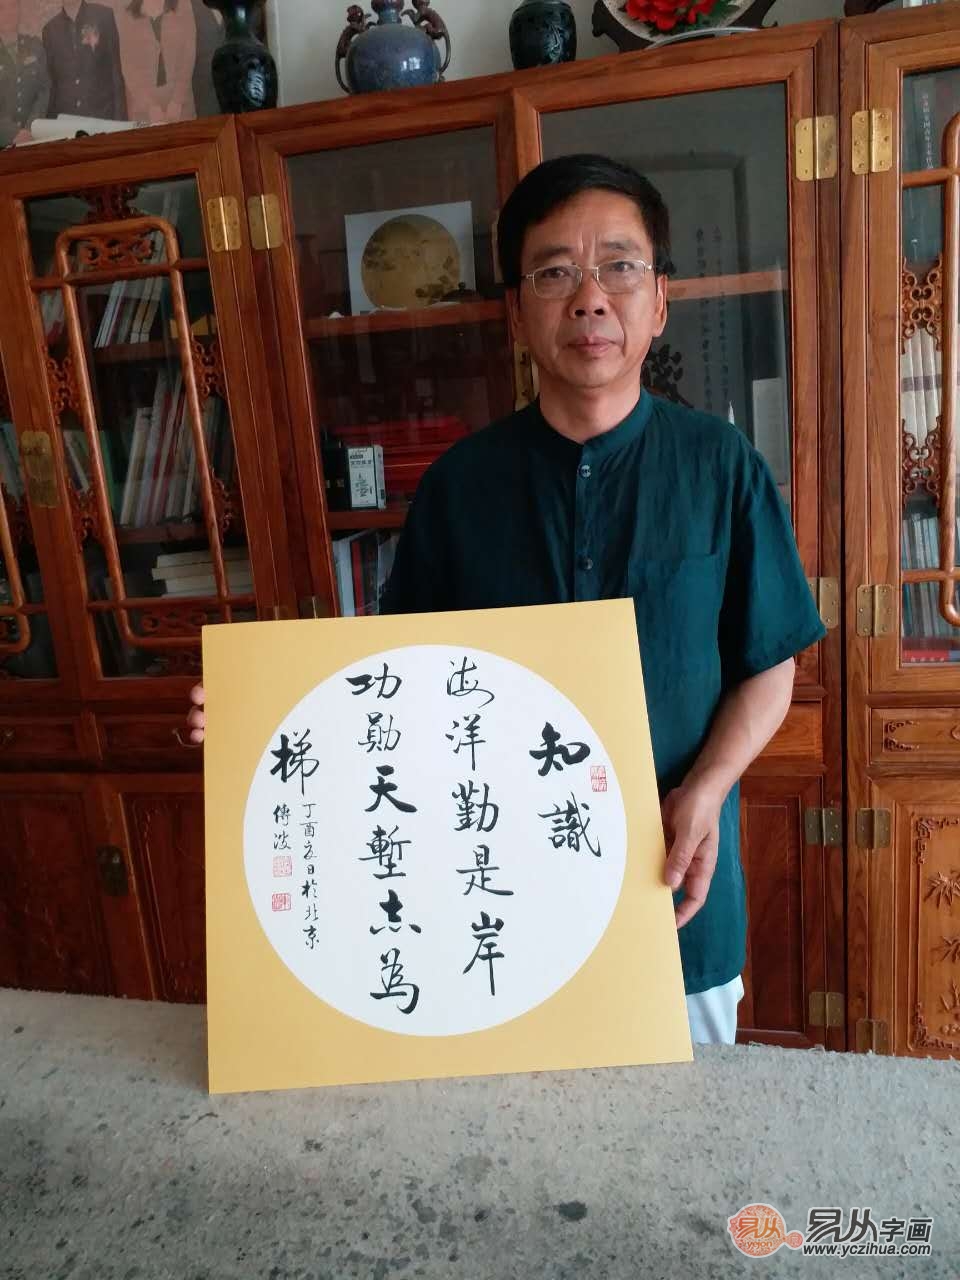 知識
海洋勤是岸
功勛天塹志為
梯
丁酉夏日於北京
傳波
易从
易从字画
www.yczihua.com